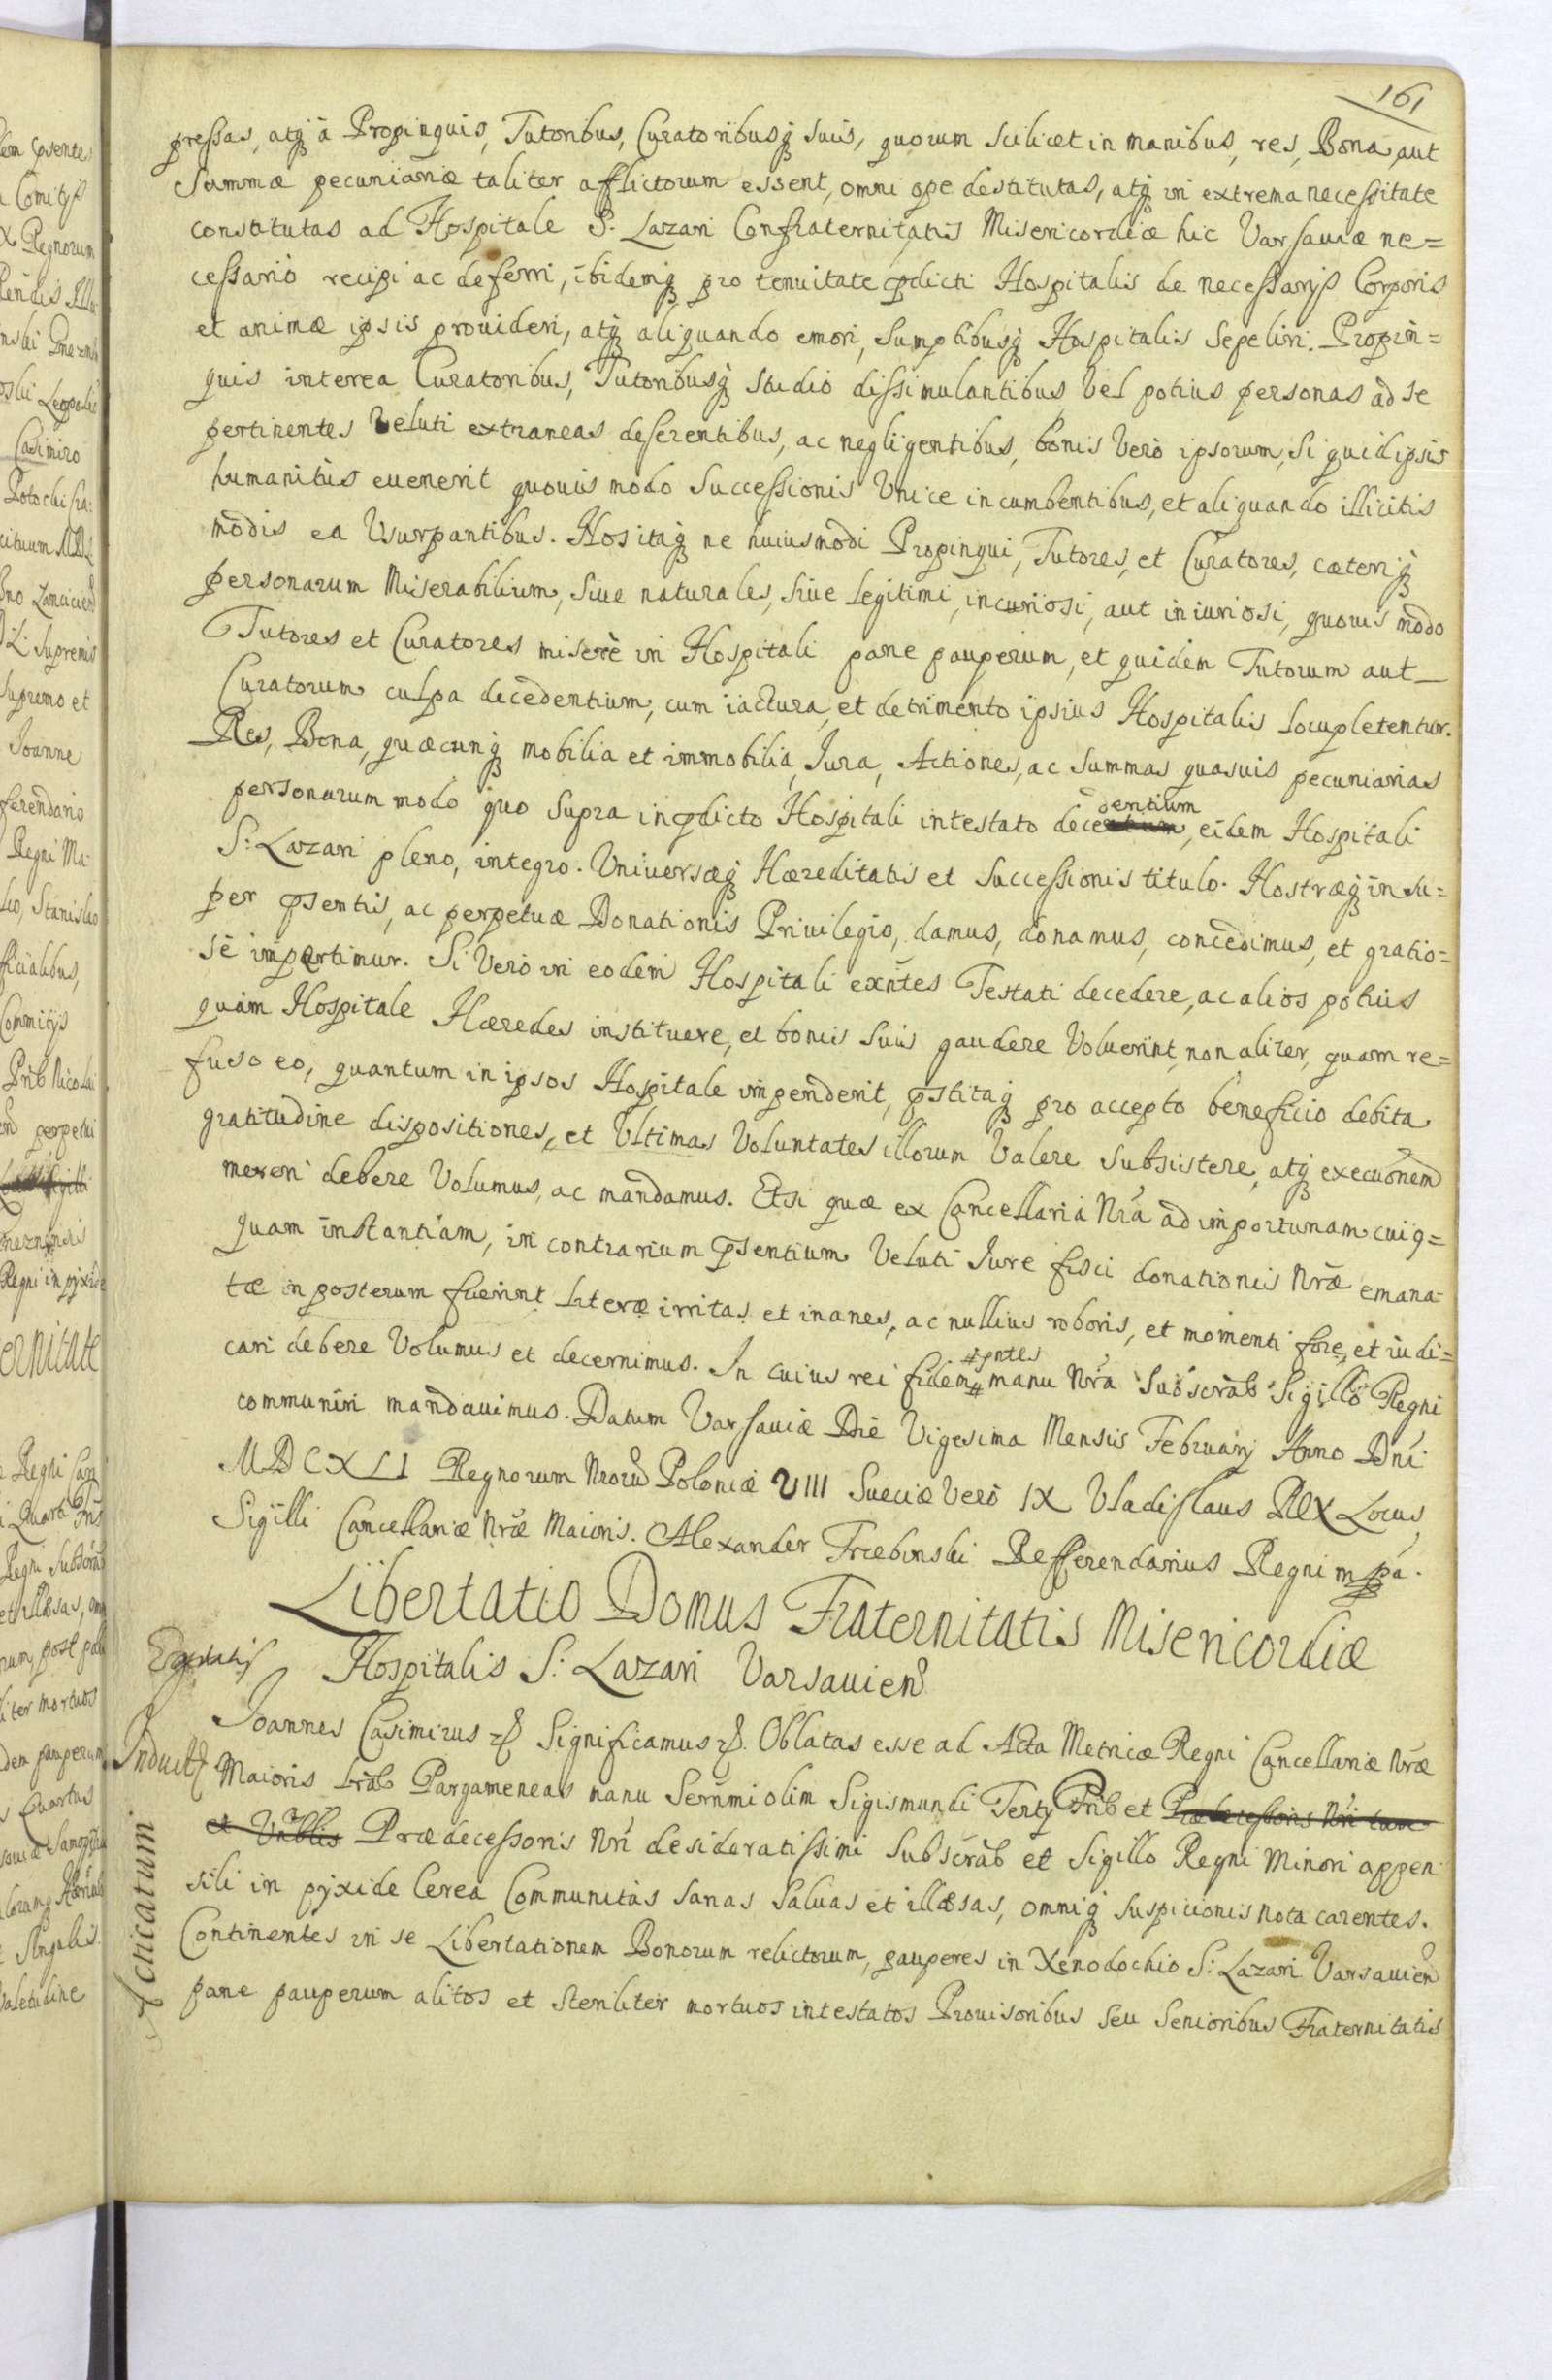 161
pressas, atq̨ à Propinquis, Tutoribus, Curatoribusq̨ suis, quorum scilicet in manibus, res, Bona, aut
Summæ pecuniariæ taliter afflictorum essent, omni ope destitutas, atq̨ in extrema necessitate
constitutas ad Hospitale S. Lazari Confraternitatis Misericordiæ hic Varsauiæ ne=
cessariò recipi ac deferri, ibidemq̨ pro tenuitate pdicti Hospitalis de necessarijs Corporis
et animæ ipsis prouideri, atq̨ aliquando emori, sumptibusq̨ Hospitalis Sepeliri. Propin=
quis interea Curatoribus, Tutoribusq̨ studio dissimulantibus vel potius personas ad se
pertinentes veluti extraneas deserentibus, ac negligentibus, bonis Verò ipsorum, si quid ipsis
humanitùs euenerit quouis modo Successionis Vnice incumbentibus, et aliquando illicitis
modis ea Vsurpantibus. Nos itaq̨ ne huiusmodi Propinqui, Tutores, et Curatores, cæteriq̨
personarum Miserabilium, siue naturales, siue Legitimi, incuriosi, aut iniuriosi, quouis modo
Tutores et Curatores miserè in Hospitali pane pauperum, et quidem Tutorum aut
Curatorum culpa decedentium, cum iactura, et detrimento ipsius Hospitalis locupletentur.
Res, Bona, quæcunq̨ mobilia et immobilia, Jura, Actiones, ac summas quasuis pecuniarias
personarum modo quo supra in pdicto Hospitali intestato decedentium, eidem Hospitali
S: Lazari pleno, integro. Vniversæq̨ Hæreditatis et Successionis titulo. Nostræq̨ insu=
per psentis, ac perpetuæ Donationis Priuilegio, damus, donamus, concedimus, et gratio=
sè impertimur. Si Verò in eodem Hospitali exñtes Testati decedere, ac alios potiùs
quàm Hospitale Hæredes instituere, et bonis suis gaudere Voluerint, non aliter, quam re=
fuso eo, quantum in ipsos Hospitale impenderit, pstitaq̨ pro accepto beneficio debita
gratitudine dispositiones, et Vltimas Voluntates illorum Valere subsistere, atq̨ execuõnem
mereri debere Volumus, ac mandamus. Etsi quæ ex Cancellaria Nrá ad importunam cuiq=
quam instantiam, in contrarium psentium veluti Jure fisci donationis Nræ emana=
tæ in posterum fuerint Literæ irritas et inanes, ac nullius roboris, et momenti fore, et iudi=
cari debere Volumus et decernimus. In cuius rei fidem #pntes# manu Nrá Subscrãs Sigillo Regni
communiri mandauimus. Datum Varsauiæ Die Vigesima Mensis Februarij Anno Dni
MDCXLI Regnorum Nrorũ Poloniæ VIII Sueciæ Verò IX Vladislaus REX Locus
Sigilli Cancellariæ Nræ Maioris. Alexander Trzebinski Refferendarius Regni mpa.
Libertatio Domus Fraternitatis Misericordiæ
Hospitalis S: Lazari Varsauien
Joannes Casimirus Significamus. Oblatas esse ad Acta Metricæ Regni Cancellariæ Nræ
Maioris Lrãs Pargameneas manu Sernmi olim Sigismundi Tertij Pris et Prædecessoris Nri tum
et Prædecessoris Nri desideratissimi Subscrãs et Sigillo Regni Minori appen
sili in pyxide Cerea Communitas sanas saluas et illæsas, omniq̨ suspicionis nota carentes.
Continentes in se Libertationem Bonorum relictorum, pauperes in Xenodochio S: Lazari Varsauien
pane pauperum alitos et steriliter mortuos intestatos Prouisoribus seu Senioribus Fraternitatis
Induct
Acticatum